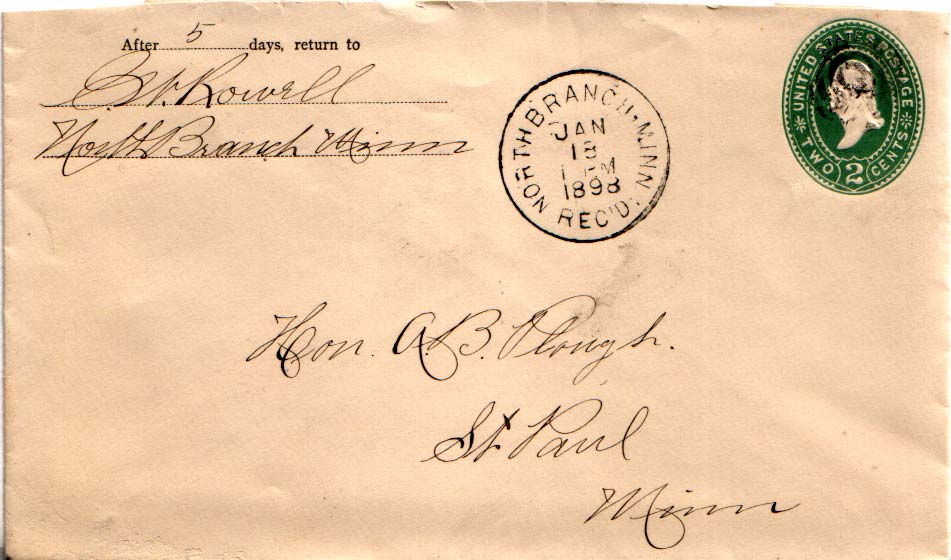 After 5 days, return to
Rowell
North Branch Minn
NORTH BRANCH, MINN.
JAN
18
1 PM
1898
REC'D.
UNITED STATES POSTAGE
TWO 2 CENTS
Hon. A. B. Plough.
St. Paul
Minn